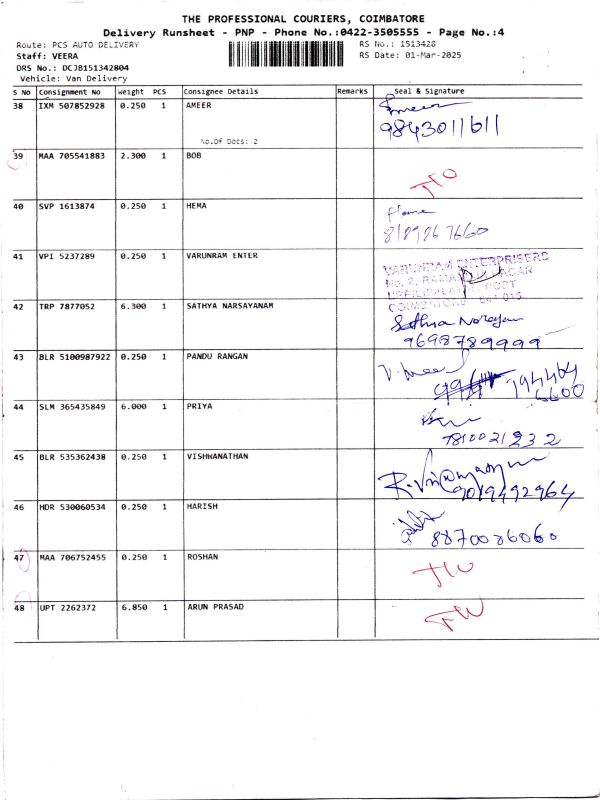 THE PROFESSIONAL COURIERS, COIMBATORE
Delivery Runsheet - PNP - Phone No.:0422-3505555 - Page No.:4
Route: PCS AUTO DELIVERY RS No.: 1513428
Staff: VEERA RS Date: 01-Mar-2025
DRS No.: DCJB151342804
Vehicle: Van Delivery
S No Consignment No Weight PCS Consignee Details Remarks Seal & Signature
38 IXM 507852928 0.250 1 AMEER
No.Of Docs: 2
9843011611
39 MAA 705541883 2.300 1 BOB
40 SVP 1613874 0.250 1 HEMA
Hema
41 VPI 5237289 0.250 1 VARUNRAM ENTER
VARUNRAM ENTERPRISERS
COIMBATORE
42 TRP 7877052 6.300 1 SATHYA NARSAYANAM
Sathya Narayan
9698789999
43 BLR 5100987922 0.250 1 PANDU RANGAN
44 SLM 365435849 6.000 1 PRIYA
7810021232
45 BLR 535362438 0.250 1 VISHWANATHAN
9019492964
46 HDR 530060534 0.250 1 HARISH
8870086060
47 MAA 706752455 0.250 1 ROSHAN
48 UPT 2262372 6.850 1 ARUN PRASAD